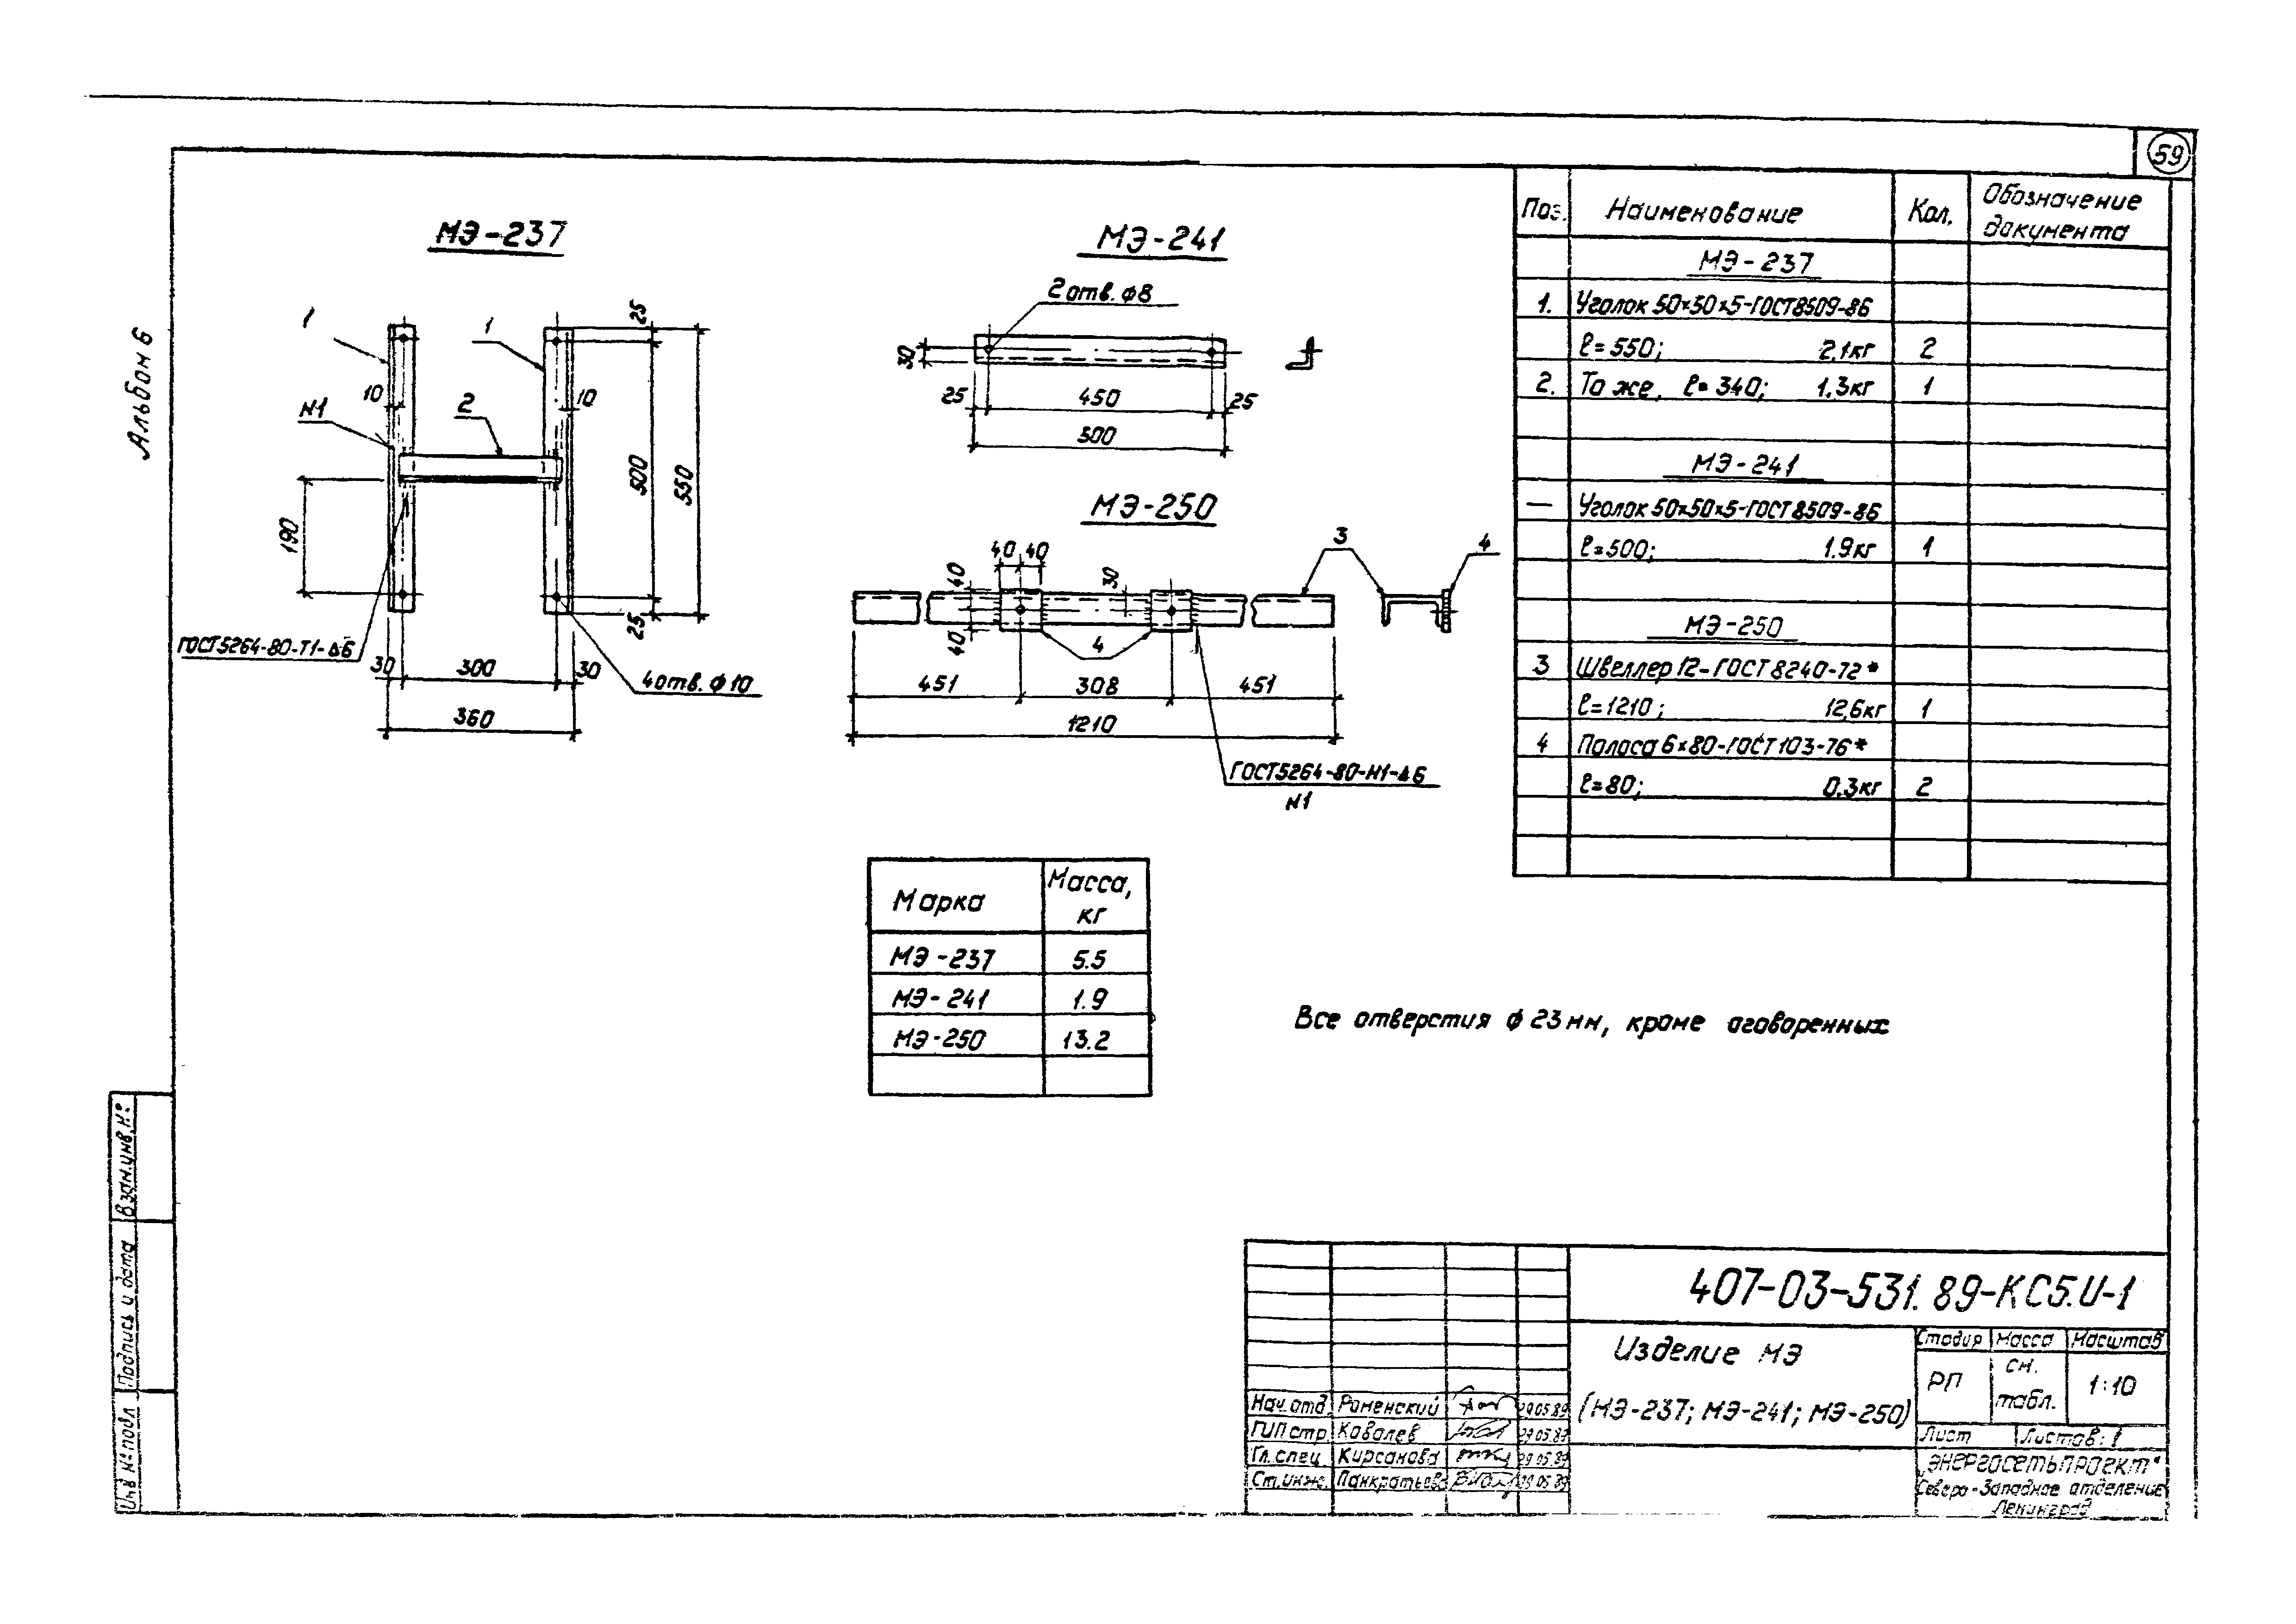 59
Альбом 6
МЭ-237
1
1
25
10
10
N1
2
500
550
190
25
ГОСТ5264-80-Т1-Δ6
30
300
30
4отв. ф10
360
МЭ-241
2отв. ф8
30
25
450
25
500
МЭ-250
40
40
40
30
3
4
40
4
451
308
451
1210
ГОСТ5264-80-Н1-Δ6
N1
Поз. Наименование Кол. Обозначение документа
МЭ-237
1. Уголок 50×50×5-ГОСТ8509-86
ℓ=550; 2,1кг 2
2. То же, ℓ=340; 1.3кг 1
МЭ-241
— Уголок 50×50×5-ГОСТ8509-86
ℓ=500; 1.9кг 1
МЭ-250
3 Швеллер 12-ГОСТ 8240-72*
ℓ=1210; 12,6кг 1
4 Полоса 6×80-ГОСТ103-76*
ℓ=80; 0.3кг 2
Марка Масса, кг
МЭ-237 5.5
МЭ-241 1.9
МЭ-250 13.2
Все отверстия ф 23мм, кроме оговоренных
Взам.инв.N:
Подпись и дата
Инв N:подл
407-03-531.89-КС5.И-1
Изделие МЭ
(МЭ-237; МЭ-241; МЭ-250)
Стадия Масса Масштаб
РП см. табл. 1:10
Лист Листов:1
Нач.отд. Роменский 29.05.89
ГИП стр. Ковалев 29.05.89
Гл.спец. Кирсанова 29.05.89
Ст.инж. Панкратьева 29.05.89
„ЭНЕРГОСЕТЬПРОЕКТ“
Северо-Западное отделение
Ленинград